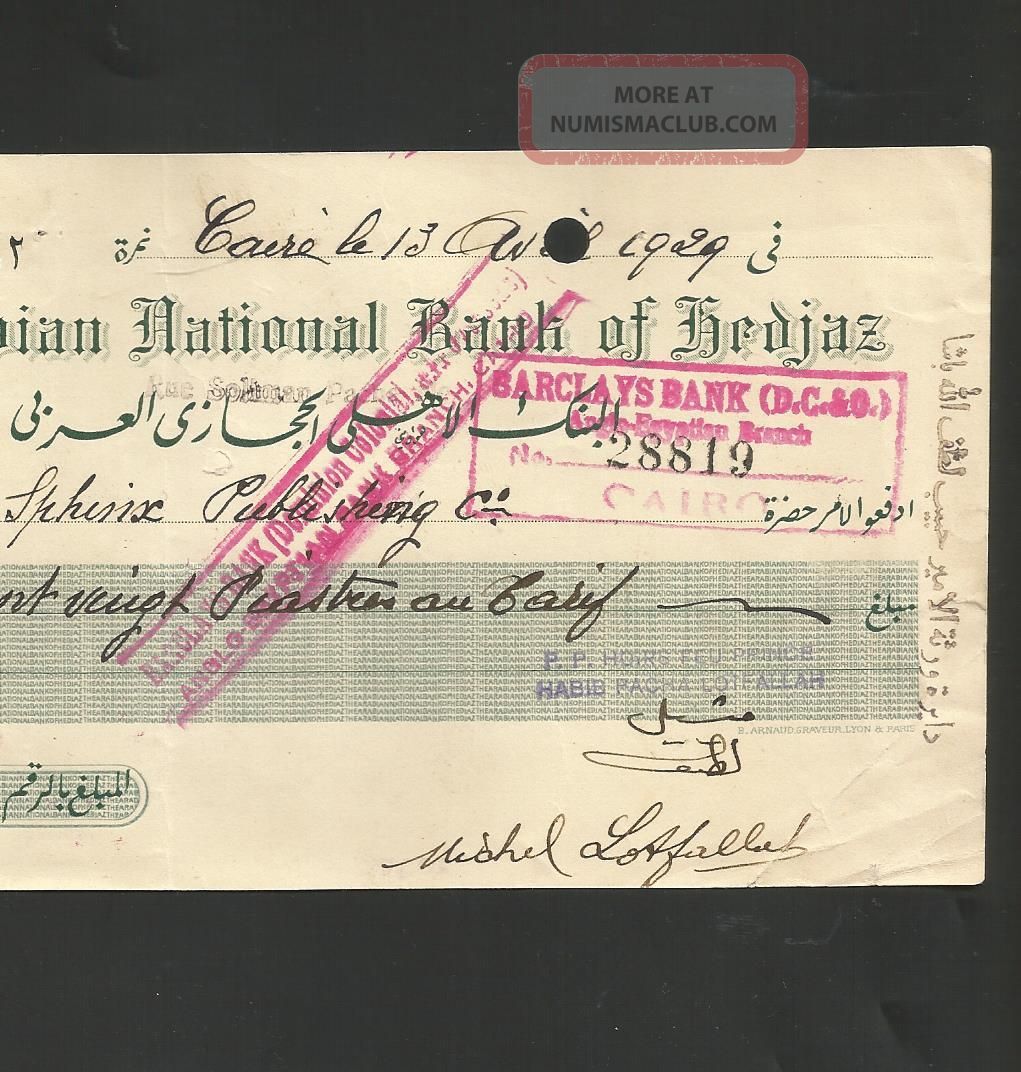 MORE AT
NUMISMACLUB.COM
٢ نمرة Cairo le 13 1929 في
bian National Bank of Hedjaz
Rue Soliman Pacha
البنك الاهلى الحجازى العربى
BARCLAYS BANK (D.C.&O.)
Anglo-Egyptian Branch
No. 28819
CAIRO
BARCLAYS BANK (Dominion Colonial and Overseas)
ANGLO-EGYPTIAN BANK BRANCH, CAIRO
Sphinx Publishing Co
ادفعو الامر حضرة
vingt Piastres au Tarif
مبلغ
P. P. HOIRS FEU PRINCE
HABIB PACHA LOTFALLAH
B. ARNAUD, GRAVEUR, LYON & PARIS
ميشيل
لطف
المبلغ بالرقم
Michel Lotfallah
الامير حبيب لطف الله باشا